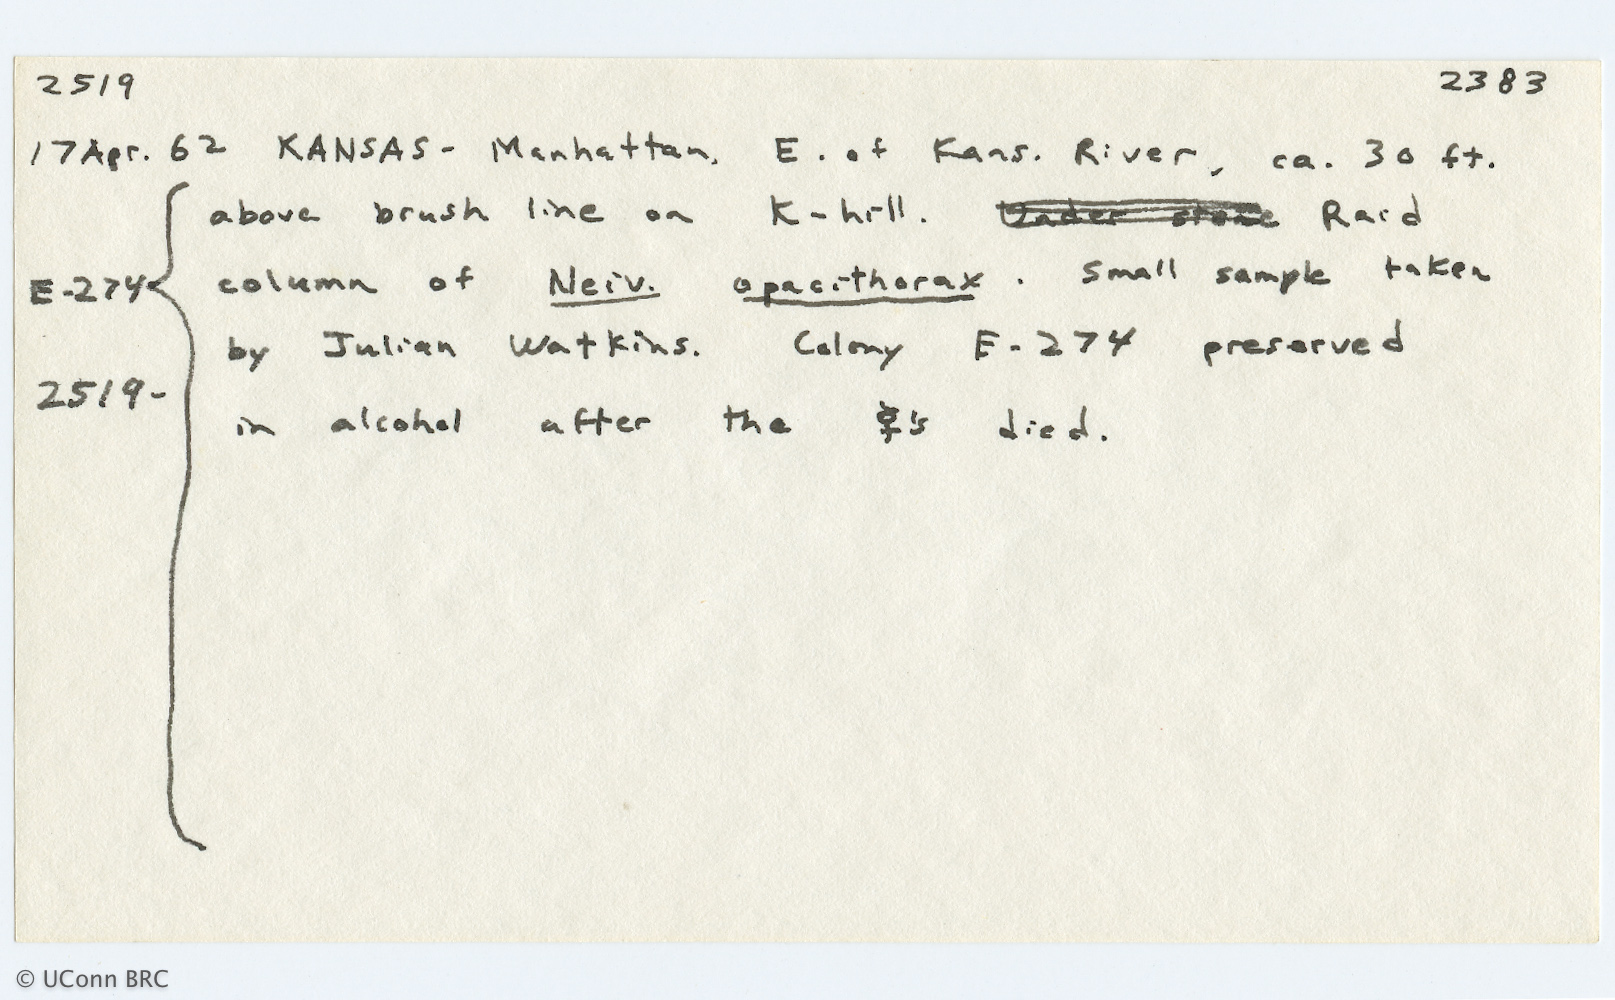 2519 2383
17 Apr. 62 KANSAS- Manhattan, E. of Kans. River, ca. 30 ft.
above brush line on K-hill. Under stone Raid
E-274 column of Neiv. opacithorax. Small sample taken
by Julian Watkins. Colony E-274 preserved
2519-
in alcohol after the ☿'s died.
© UConn BRC